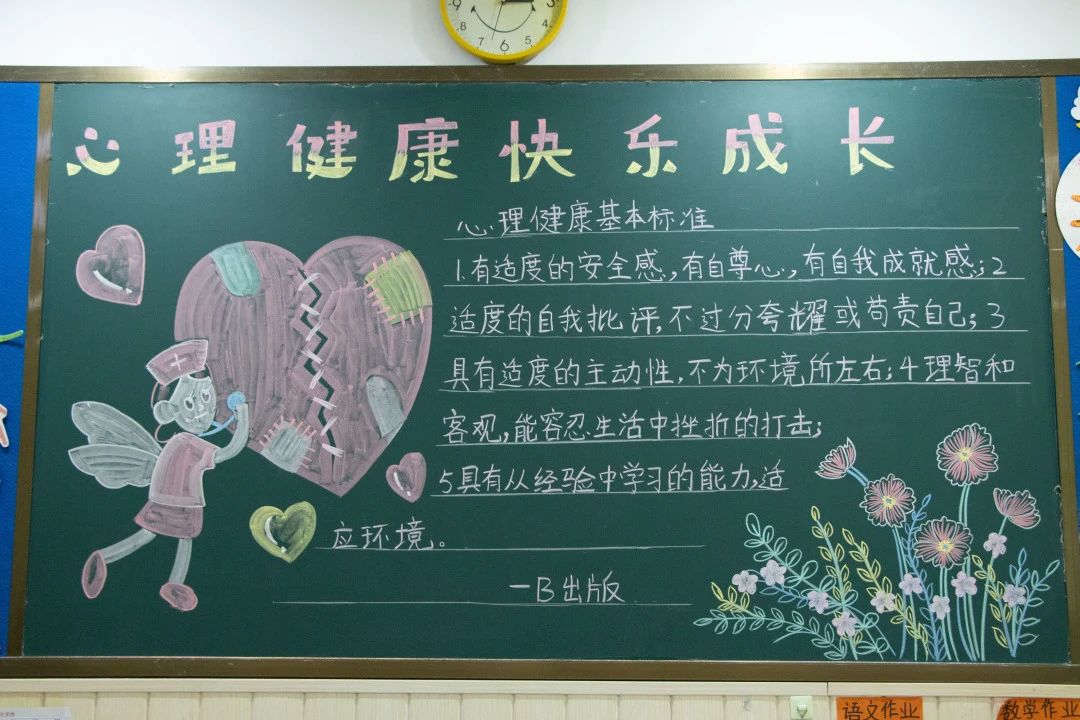 9 3
8 4
7 6 5
心理健康快乐成长
心理健康基本标准
1.有适度的安全感,有自尊心,有自我成就感;2
适度的自我批评,不过分夸耀或苟责自己;3
具有适度的主动性,不为环境所左右;4理智和
客观,能容忍生活中挫折的打击;
5具有从经验中学习的能力,适
应环境。
一B出版
语文作业
数学作业